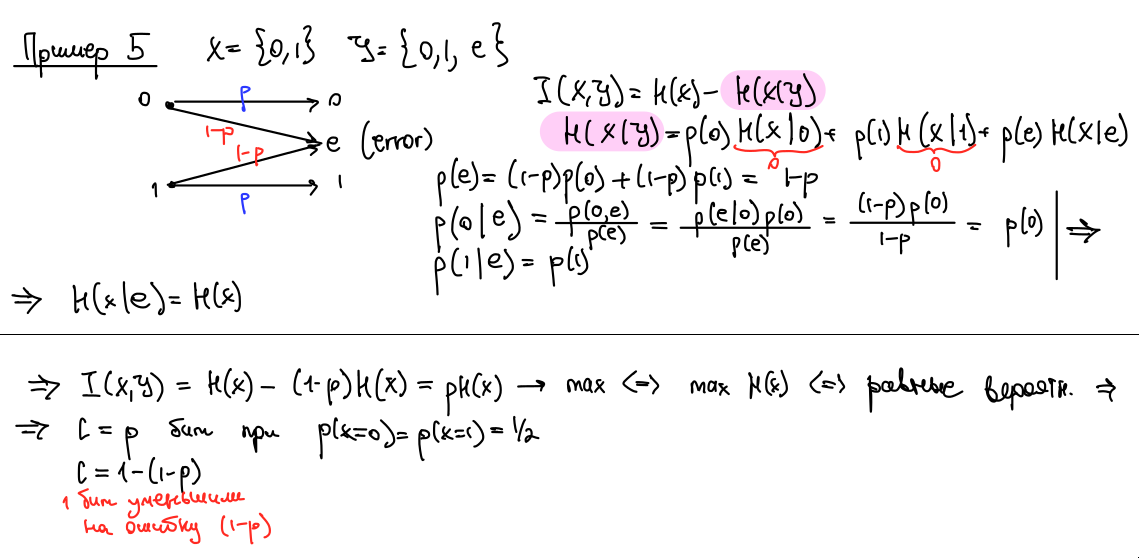 Пример 5 X = {0,1} Y = {0,1, e}
0 p 0
1-p
1-p
e (error)
1 p 1
I(X,Y) = H(X) - H(X|Y)
H(X|Y) = p(0) H(X|0) + p(1) H(X|1) + p(e) H(X|e)
0 0
p(e) = (1-p)p(0) + (1-p)p(1) = 1-p
p(0|e) = p(0,e)/p(e) = p(e|0)p(0)/p(e) = (1-p)p(0)/1-p = p(0) | ⇒
p(1|e) = p(1)
⇒ H(X|e) = H(X)
⇒ I(X,Y) = H(X) - (1-p)H(X) = pH(X) → max <=> max H(X) <=> равные вероятн. ⇒
⇒ C = p бит при p(x=0) = p(x=1) = 1/2
C = 1-(1-p)
1 бит уменьшили
на ошибку (1-p)